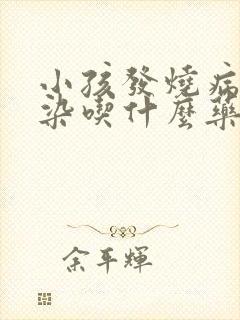 小孩發燒病
染喫什麼藥
余平輝